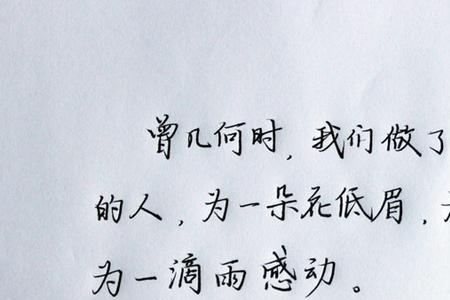 曾几何时，我们做了
的人，为一朵花低眉，
为一滴雨感动。